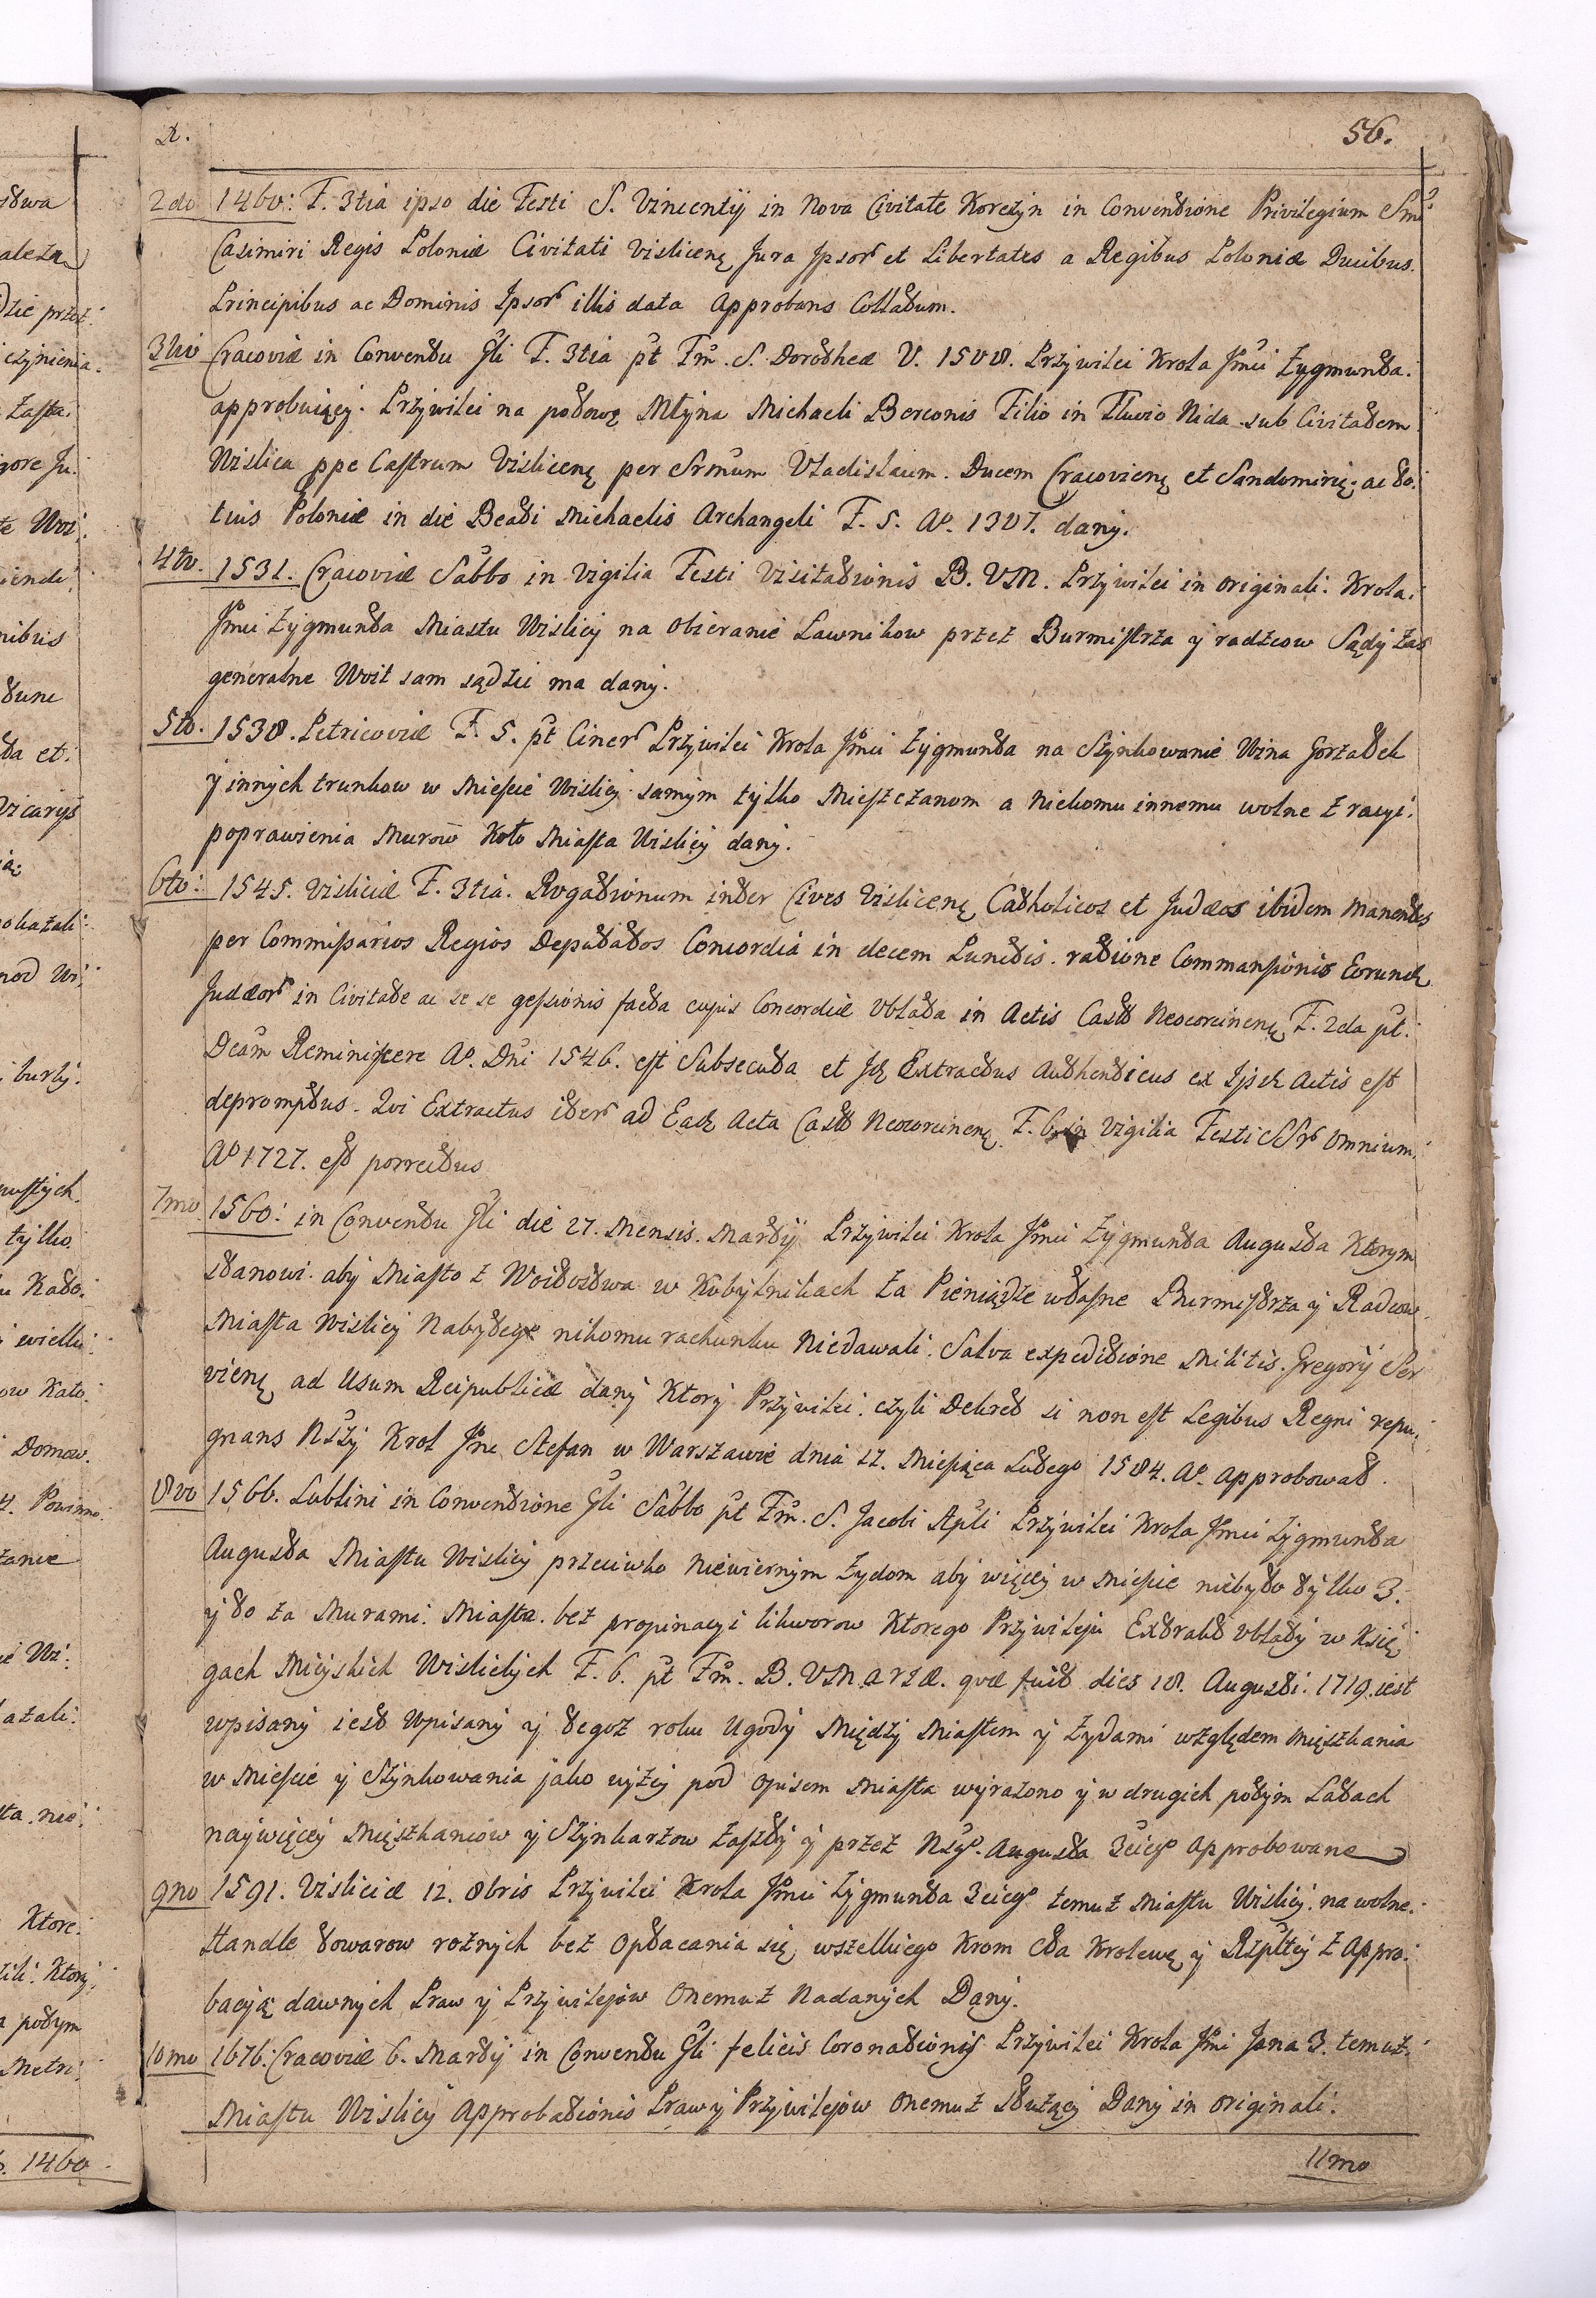 R. 56.
2do 1460: F. 3tia ipso die Festi S. Vincentÿ in Nova Civitate Korczyn in Conventione Privilegium Smi
Casimiri Regis Poloniæ Civitati Vislicenę Jura Ipsor et Libertates a Regibus Poloniæ Ducibus.
Principibus ac Dominis Ipsor illis data approbans Collatum.
3tio Cracoviæ in Conventu Gli F. 3tia pt Fm. S. Dorotheæ V. 1508. Przywilei Krola Jmci Zygmunta.
approbuiący. Przywilei na potowę Młyna Michaeli Berconis Filio in Fluvio Nida sub Civitatem
Wislica ppe Castrum Vislicenę per Srmum Vladislaum. Ducem Cracovienę et Sandomirię. ac to:
tius Poloniæ in die Beati Michaelis Archangeli F. 5. Ao. 1307. dany.
4to. 1531. Cracoviæ Sabbo in Vigilia Festi Visitationis B. V M. Przywilei in originali. Krola.
Jmci Zygmunta Miastu Wislicy na Obieranie Ławnikow przez Burmistrza y radzcow Sądy zaś
generalne Woit sam sądzic ma dany.
5to. 1538. Petricoviæ F. 5. pt Ciner Przywilei Krola Jmci Zygmunta na Szynkowanie Wina Gorzałek
y innych trunkow w Miescie Wislicy samym tylko Mieszczanom a Nikomu innemu wolne z racyi.
poprawienia Murow Koło Miasta Wislicy dany.
6to: 1545. Visliciæ F. 3tia. Rogationum inter Cives Vislicenę Catholicos et Judæos ibidem Manentes
per Commissarios Regios Deputatos Concordia in decem Punctis. ratione Commansionis Eorundz
Judæor in Civitate ac se se gessionis facta cujus Concordiæ Oblata in Actis Castr Neocorcinenę F. 2da pt.
Dcam Reminiscere Ao. Dni 1546. est Subsecuta et Jz Extractus Authenticus ex Ijsdz Actis est
depromptus. Qui Extractus iter ad Eadz Acta Castr Neocorcinenę F. 6. in Vigilia Festi SSr Omnium.
Ao 1727. est porrectus
7mo. 1560: in Conventu Gli die 27. Mensis. Martÿ Przywilei Krola Jmci Zygmunta Augusta Ktorym
stanowi. aby Miasto z Woitostwa w Kobylnikach za Pieniądze własne Burmistrza y Radcow.
Miasta Wislicy Nabytego nikomu rachunku Niedawali. Salva expeditione Militis. Gregorÿ Ser
vienę ad Usum Reipublicæ dany Ktory Przywilei. czyli Dekret si non est Legibus Regni repu.
gnans Nszy Krol Jmc Stefan w Warszawie dnia 17. Miesiąca Lutego 1584. Ao. approbował.
8vo 1566. Lublini in Conventione Gli Sabbo pt Fm. S. Jacobi Apli Przywilei Krola Jmci Zygmunta
Augusta Miastu Wislicy przeciwko Niewiernym Zydom aby więcey w Miescie niebyło tylko 3.
y to za Murami. Miasta. bez propinacyi likworow Ktorego Przywileju Extrakt oblaty w Księ
gach Mieyskich Wislickych F. 6. pt Fm. B. V M. quæ fuit dies 18. Augusti. 1719. iest
wpisany iest Wpisany y tegoz roku Ugody Między Miastem y Zydami względem Mięszkania
w Miescie y Szynkowania jako wyżey pod Opisem Miasta wyrazono y w drugich potym Latach
naywięcey Mięszkancow y Szynkarzow zaszły y przez Nsgo. Augusta 3ciego Approbowane
9no 1591. Visliciæ 12. 8bris Przywilei Krola Jmci Zygmunta 3ciego temuz Miastu Wislicy. na wolne.
Handle towarow roznych bez Opłacania się wszelkiego Krom Cła Krolewę y Rzpltey z Appro:
bacyją dawnych Praw y Przywilejow Onemuz Nadanych Dany.
10mo 1676. Cracoviæ 6. Martÿ in Conventu Gli felicis Coronationis Przywilei Krola Jmi Jana 3. temuz.
Miastu Wislicy Approbationis Praw y Przywilejow Onemuz Służący Dany in Originali.
11mo